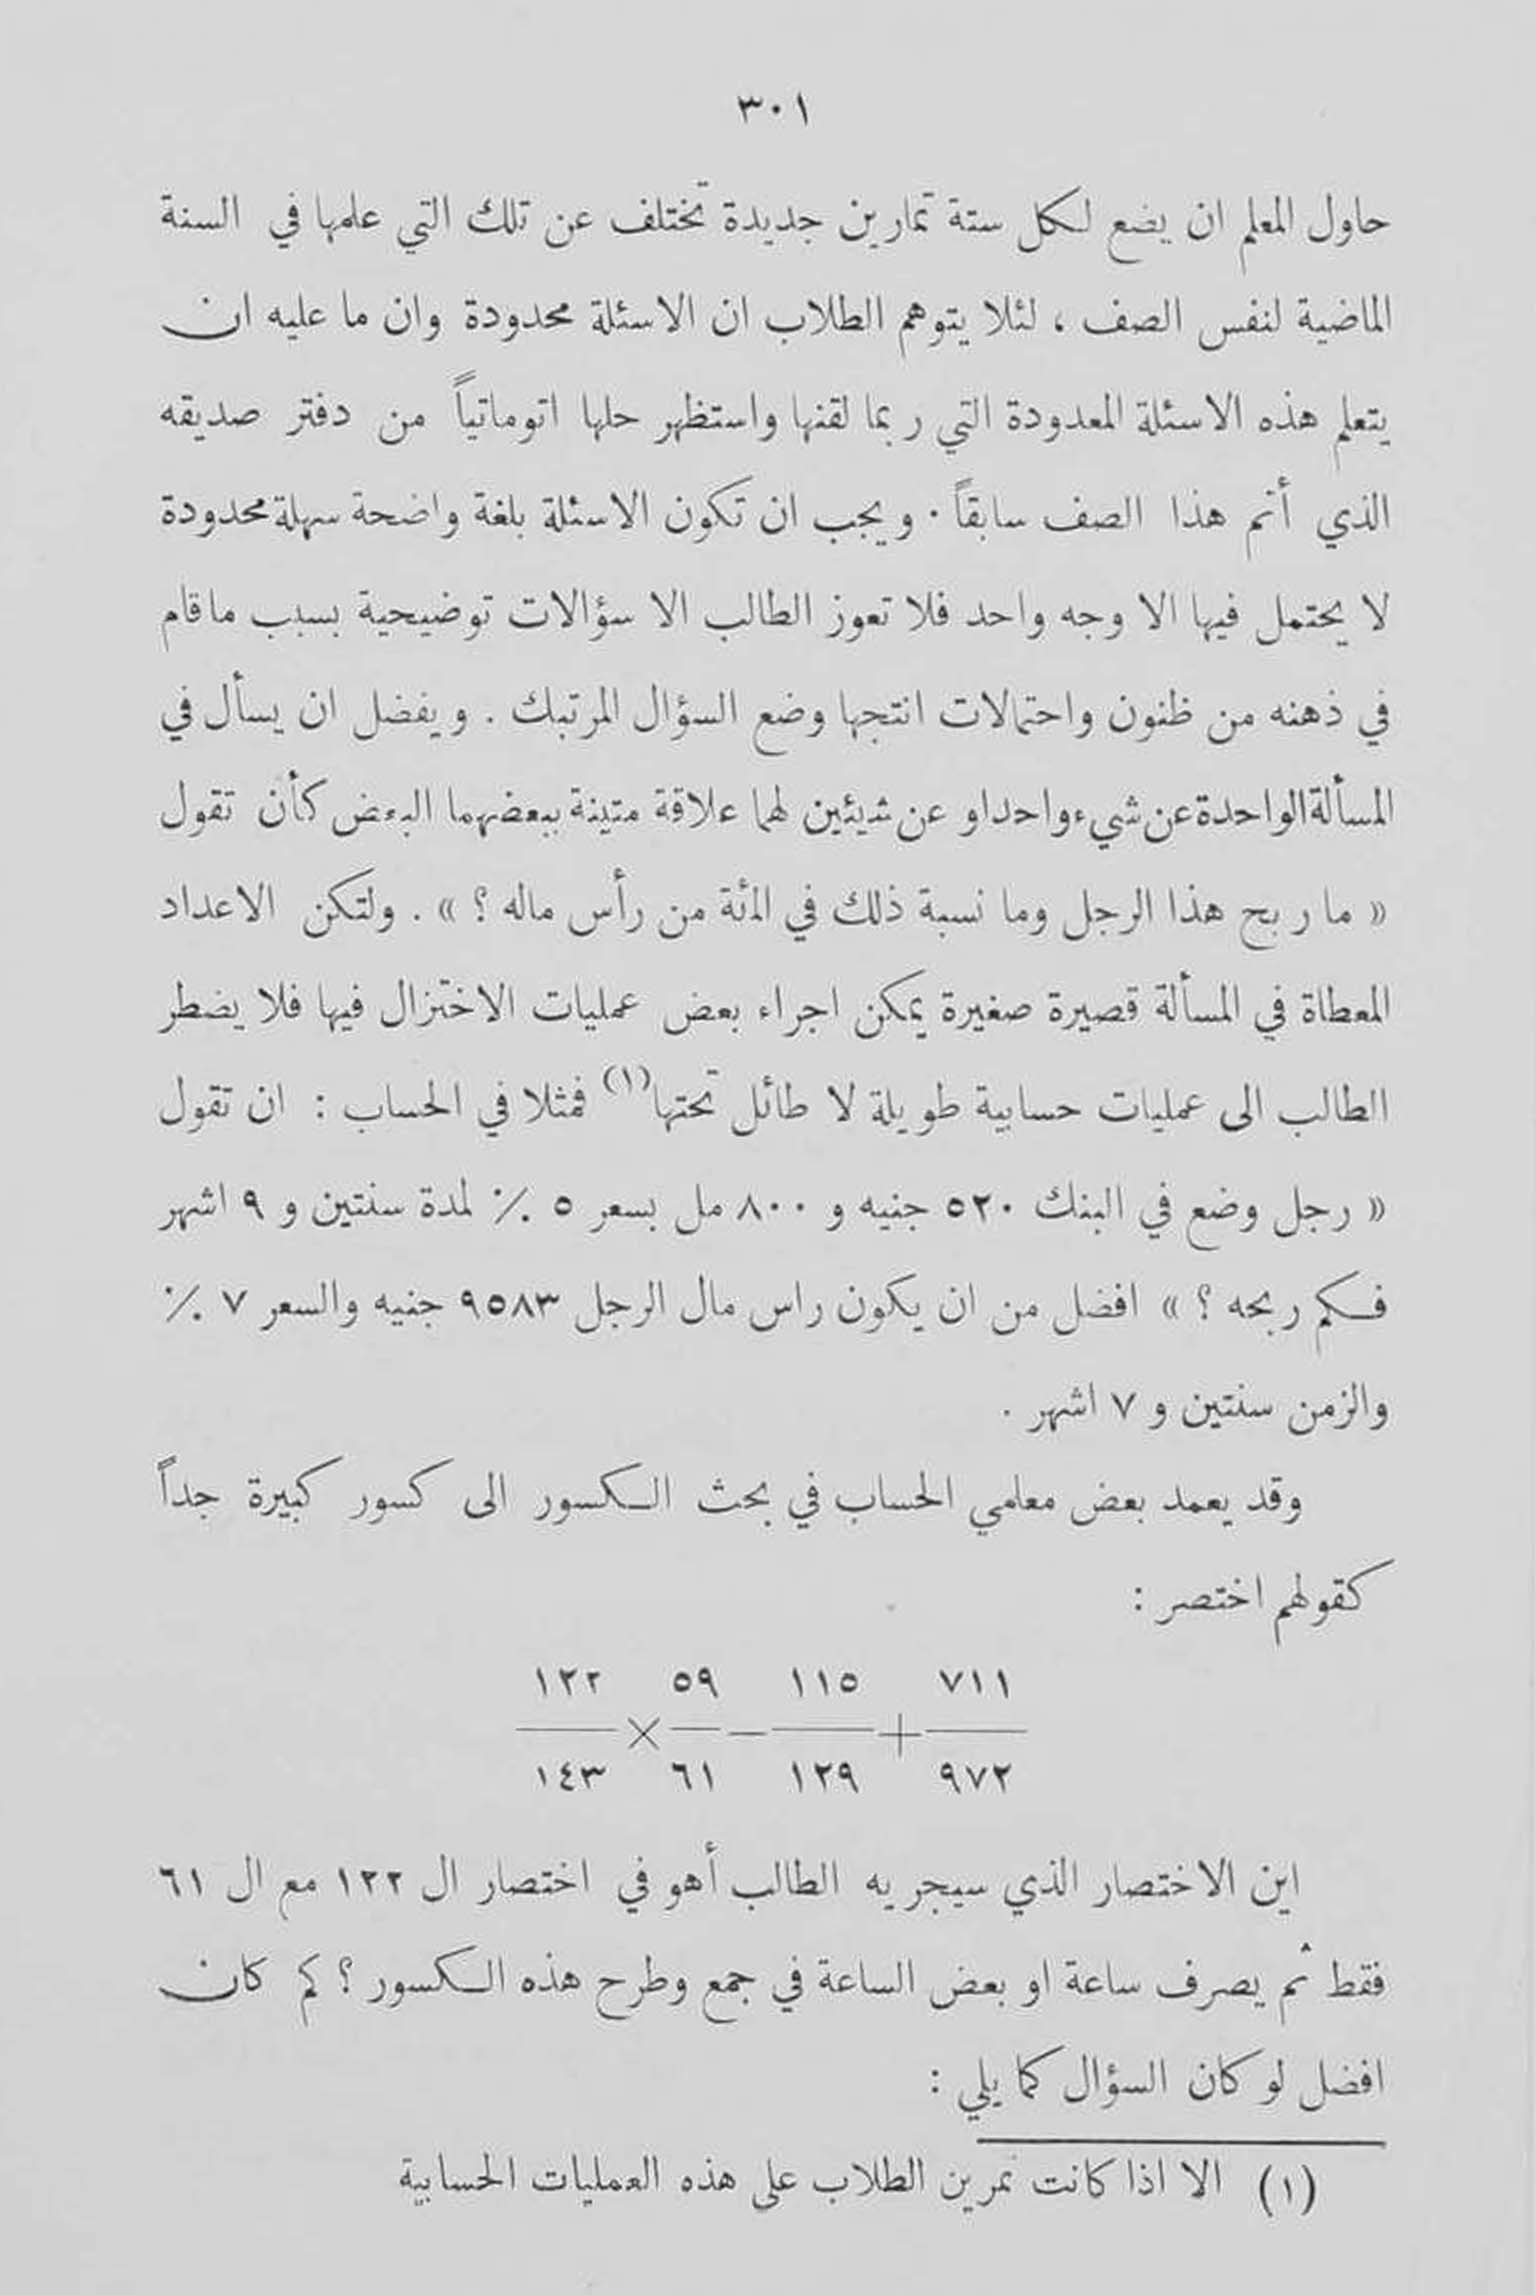 ٣٠١
حاول المعلم ان يضع لكل ستة تمارين جديدة تختلف عن تلك التي علمها في السنة
الماضية لنفس الصف ، لئلا يتوهم الطلاب ان الاسئلة محدودة وان ما عليه ان
يتعلم هذه الاسئلة المعدودة التي ربما لقنها واستظهر حلها اتوماتياً من دفتر صديقه
الذي أتم هذا الصف سابقاً . ويجب ان تكون الاسئلة بلغة واضحة سهلة محدودة
لا يحتمل فيها الا وجه واحد فلا تعوز الطالب الا سؤالات توضيحية بسبب ما قام
في ذهنه من ظنون واحتمالات انتجها وضع السؤال المرتبك . ويفضل ان يسأل في
المسألة الواحدة عن شيء واحد او عن شيئين لهما علاقة متينة ببعضهما البعض كأن تقول
« ما ربح هذا الرجل وما نسبة ذلك في المئة من رأس ماله ؟ » . ولتكن الاعداد
المعطاة في المسألة قصيرة صغيرة يمكن اجراء بعض عمليات الاختزال فيها فلا يضطر
الطالب الى عمليات حسابية طويلة لا طائل تحتها (١) فمثلا في الحساب : ان تقول
« رجل وضع في البنك ٥٢٠ جنيه و ٨٠٠ مل بسعر ٥ ٪ لمدة سنتين و ٩ اشهر
فكم ربحه ؟ » افضل من ان يكون راس مال الرجل ٩٥٨٣ جنيه والسعر ٧ ٪
والزمن سنتين و ٧ اشهر .
وقد يعمد بعض معلمي الحساب في بحث الكسور الى كسور كبيرة جداً
كقولهم اختصر :
٧١١ ١١٥ ٥٩ ١٢٢
+ − ×
٩٧٢ ١٢٩ ٦١ ١٤٣
اين الاختصار الذي سيجريه الطالب أهو في اختصار ال ١٢٢ مع ال ٦١
فقط ثم يصرف ساعة او بعض الساعة في جمع وطرح هذه الكسور ؟ كم كان
افضل لو كان السؤال كما يلي :
(١) الا اذا كانت تمرين الطلاب على هذه العمليات الحسابية